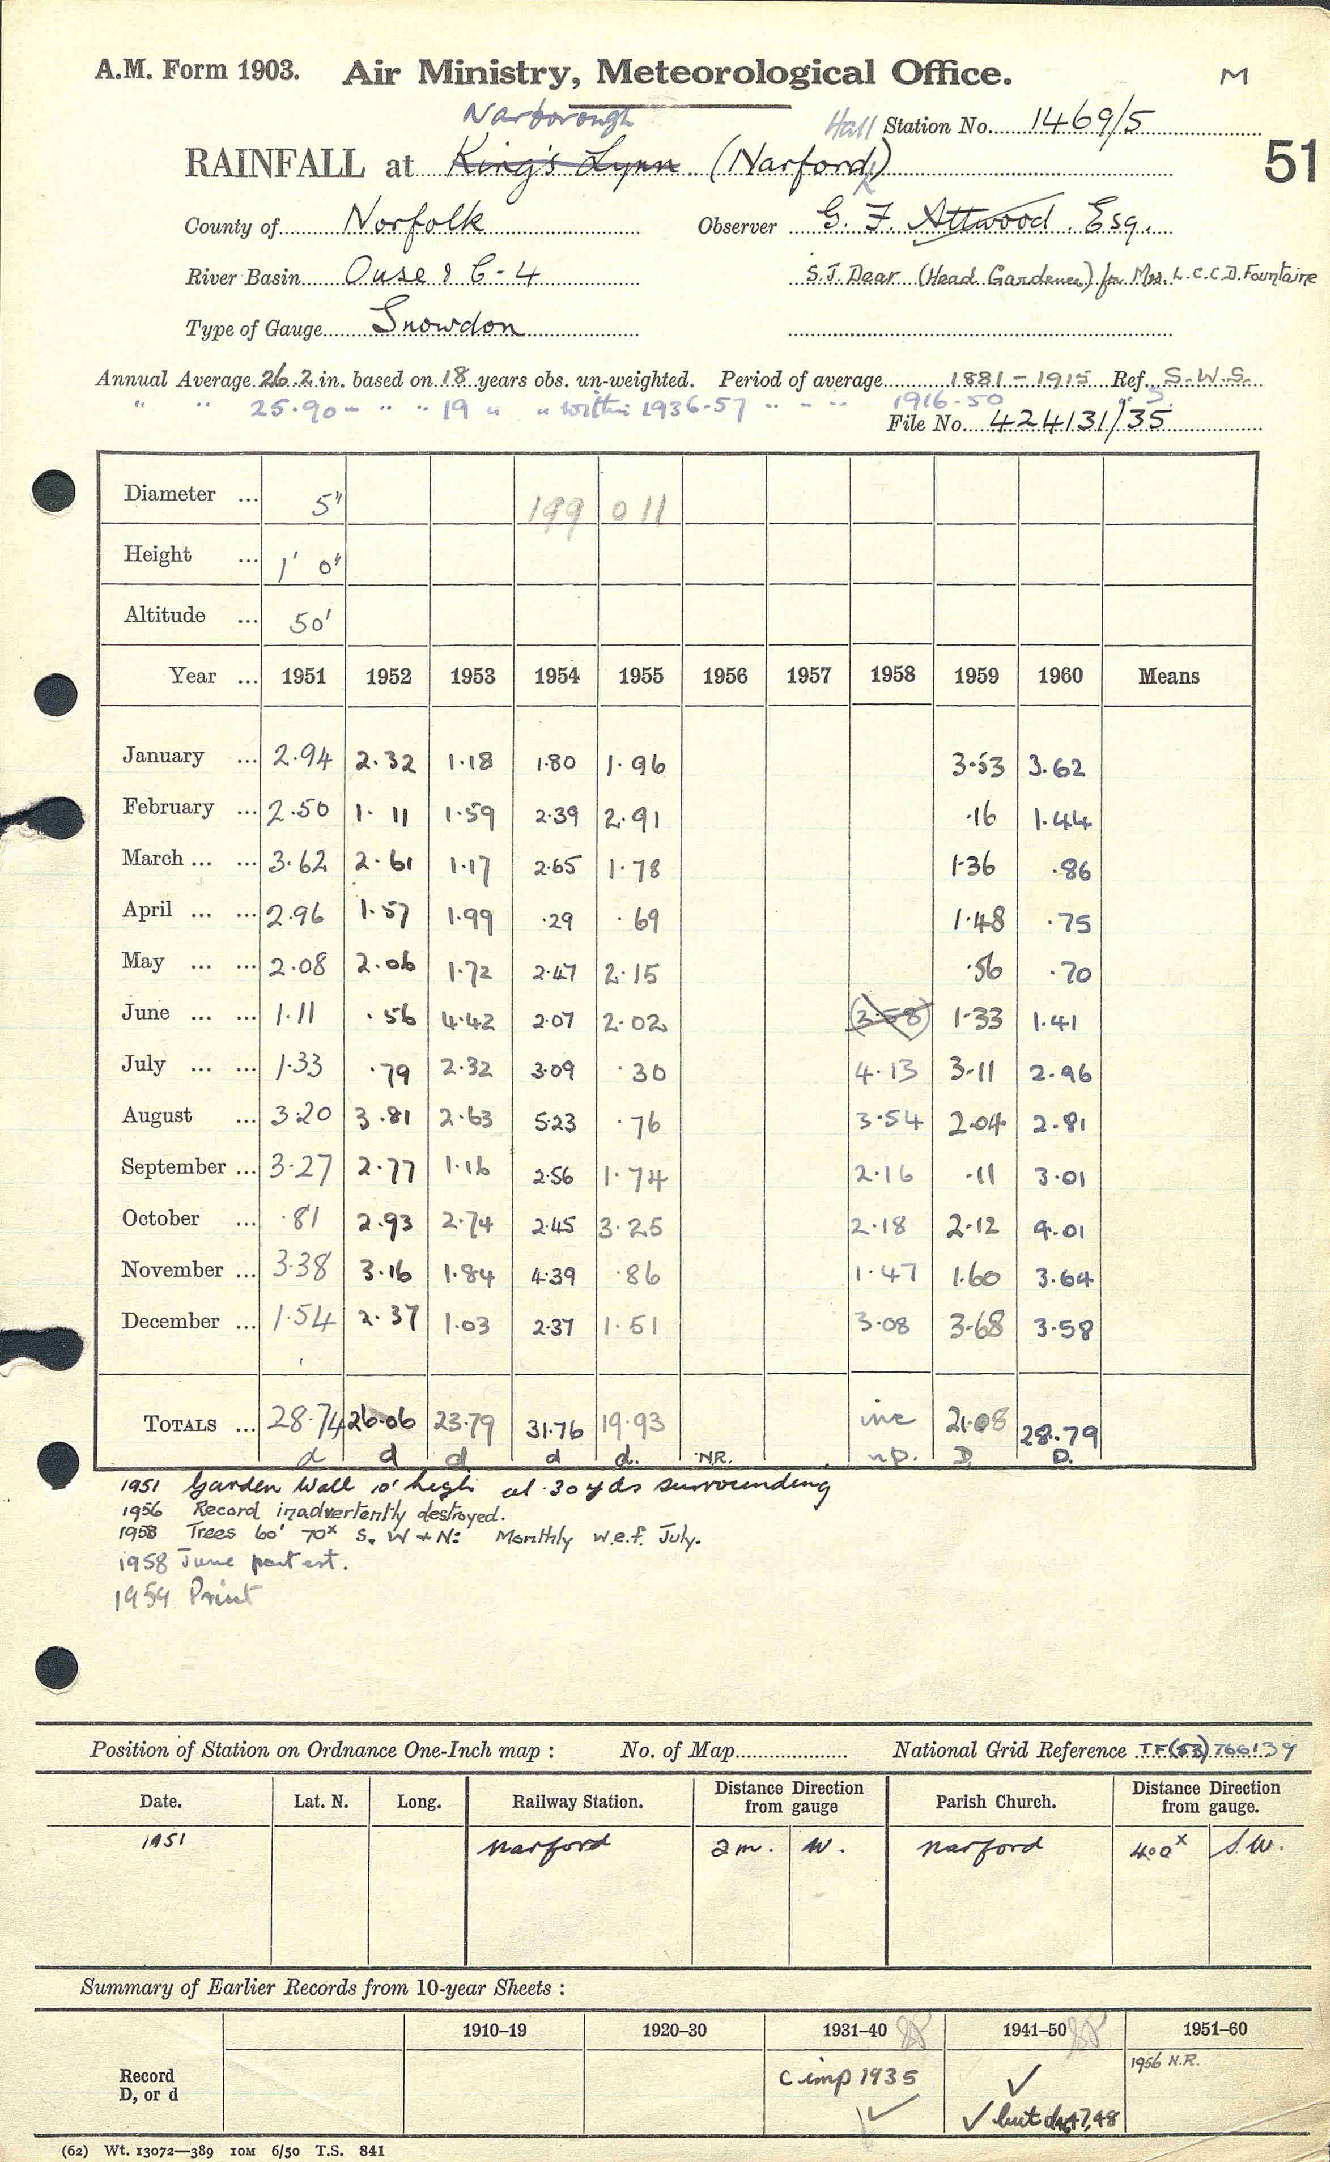 A.M. Form 1903. Air Ministry, Meteorological Office. M
Narborough Hall Station No. 1469/5
RAINFALL at King's Lynn (Narford) 51
County of Norfolk Observer G. F. Attwood. Esq.
River Basin Ouse & C-4 S.J. Dear (Head Gardener) for Mrs. L.C.C.D. Fountaine
Type of Gauge Snowdon
Annual Average 26.2 in. based on 18 years obs. un-weighted. Period of average 1881-1915 Ref. S.W.S.
" " 25.90 " " " 19 " " within 1936-57 " " " 1916-50 "
File No. 424131/35
Diameter ... 5" 199 011
Height ... 1' 0"
Altitude ... 50'
Year ... 1951 1952 1953 1954 1955 1956 1957 1958 1959 1960 Means
January ... 2.94 2.32 1.18 1.80 1.96 3.53 3.62
February ... 2.50 1.11 1.59 2.39 2.91 .16 1.44
March ... ... 3.62 2.61 1.17 2.65 1.78 1.36 .86
April ... ... 2.96 1.57 1.99 .29 .69 1.48 .75
May ... ... 2.08 2.06 1.72 2.47 2.15 .56 .70
June ... ... 1.11 .56 4.42 2.07 2.02 (3.58) 1.33 1.41
July ... ... 1.33 .79 2.32 3.09 .30 4.13 3.11 2.96
August ... 3.20 3.81 2.63 5.23 .76 3.54 2.04 2.81
September ... 3.27 2.77 1.16 2.56 1.74 2.16 .11 3.01
October ... .81 2.93 2.74 2.45 3.25 2.18 2.12 4.01
November ... 3.38 3.16 1.84 4.39 .86 1.47 1.60 3.64
December ... 1.54 2.37 1.03 2.37 1.51 3.08 3.68 3.58
TOTALS ... 28.74 26.06 23.79 31.76 19.93 inc 21.08 28.79
d d d d d. NR. n.p. D D.
1951 Garden Wall 10' high at 30 yds surrounding
1956 Record inadvertently destroyed.
1958 Trees 60' 70x S, W + N: Monthly w.e.f. July.
1958 June part est.
1959 Print
Position of Station on Ordnance One-Inch map : No. of Map National Grid Reference TF(53)766139
Date. Lat. N. Long. Railway Station. Distance from gauge Direction Parish Church. Distance from gauge. Direction
1951 Narford 2m. W. Narford 400x S.W.
Summary of Earlier Records from 10-year Sheets :
1910–19 1920–30 1931–40 1941–50 1951–60
Record D, or d C imp 1935 ✓ ✓ 1956 N.R.
✓ but d 47,48
(62) Wt. 13072—389 10M 6/50 T.S. 841